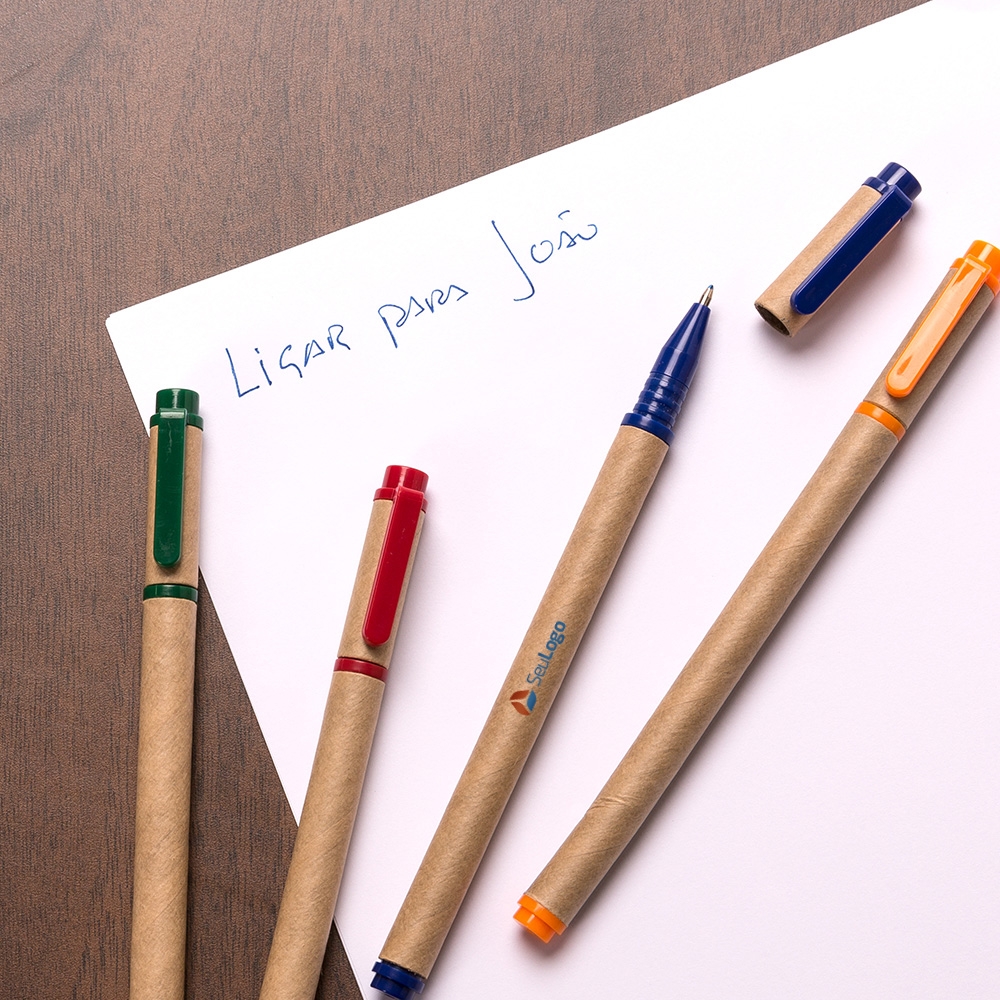 Ligar para João
SeuLogo